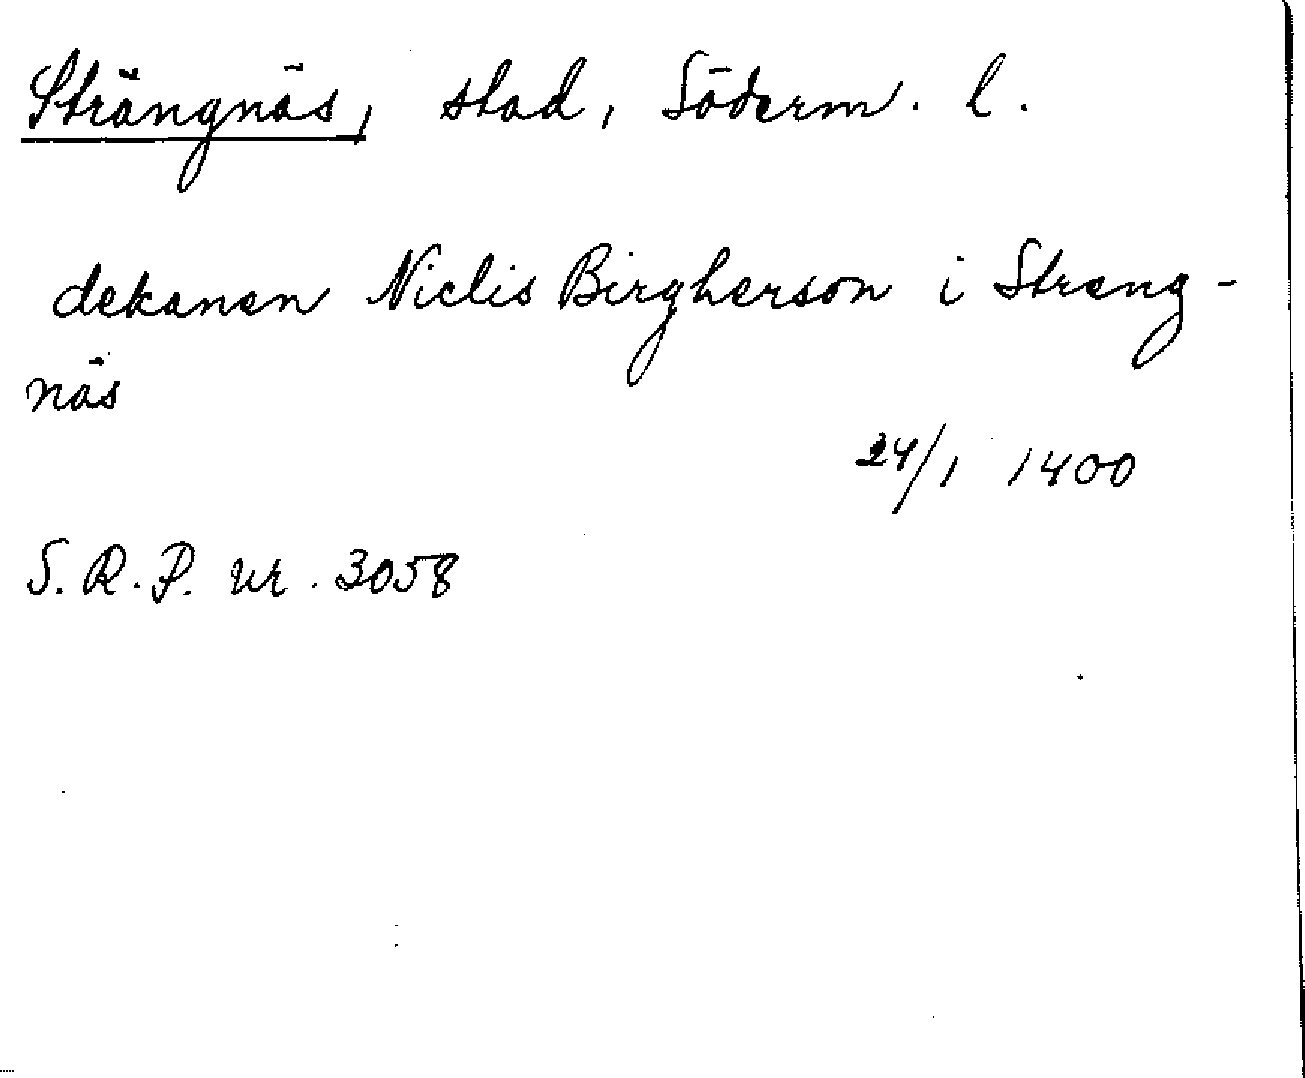 Strängnäs, stad, Söderm. l.
dekanen Niclis Birgherson i Streng-
näs
24/1 1400
S. R. P. nr. 3058